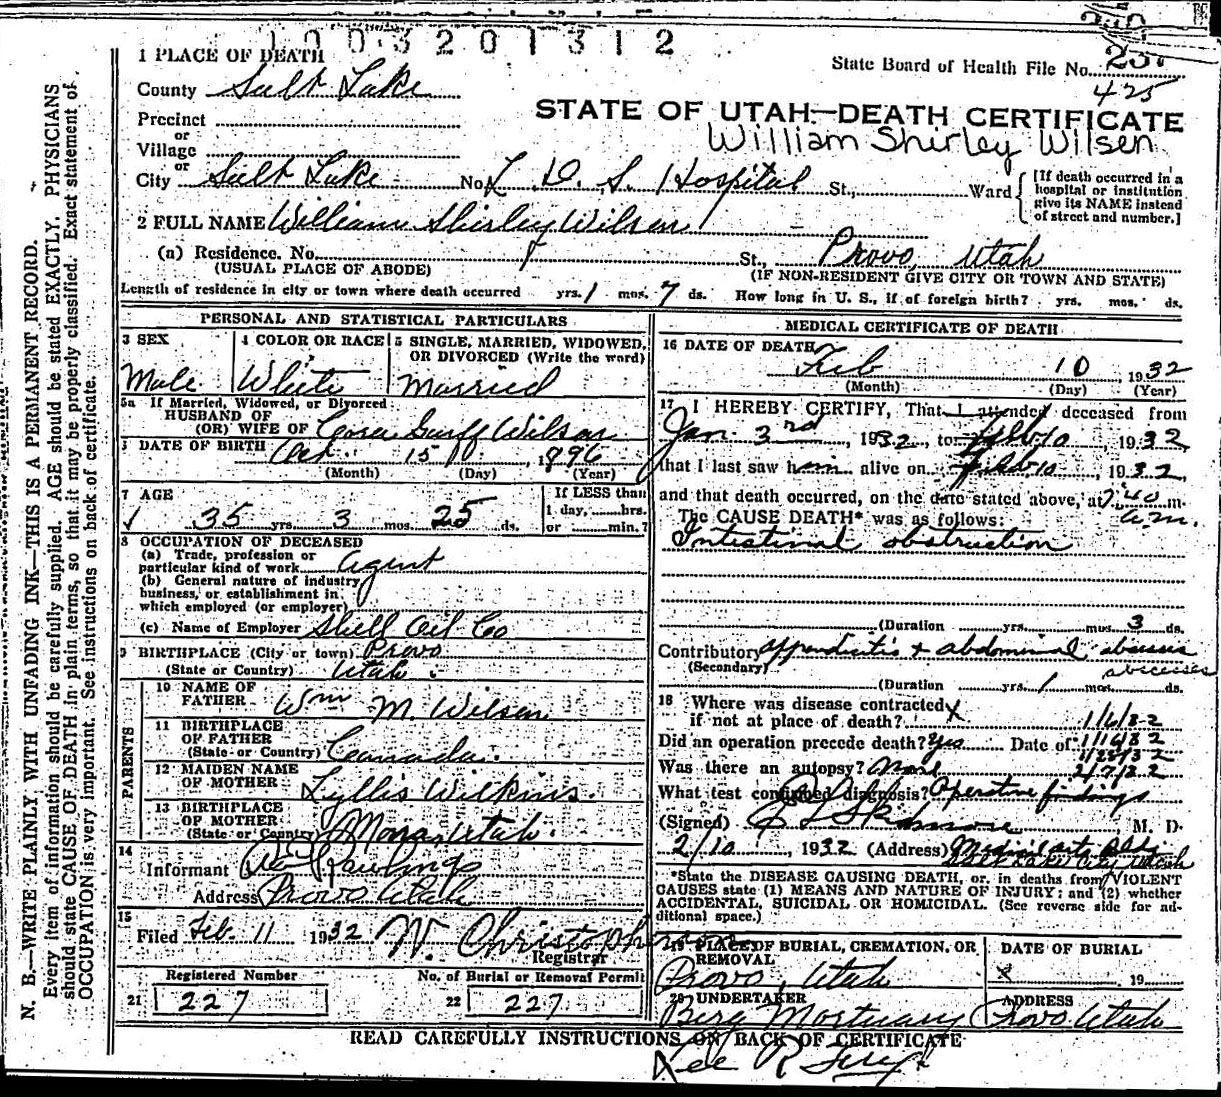 1003201312
1 PLACE OF DEATH
State Board of Health File No.
425
County Salt Lake
STATE OF UTAH—DEATH CERTIFICATE
Precinct
William Shirley Wilsen
or
Village
or
City Salt Lake No. L. D. S. Hospital St., Ward
[If death occurred in a hospital or institution give its NAME instead of street and number.]
2 FULL NAME William Shirley Wilson
(a) Residence. No. St., Provo, Utah
(USUAL PLACE OF ABODE) (IF NON-RESIDENT GIVE CITY OR TOWN AND STATE)
Length of residence in city or town where death occurred yrs. 1 mos. 7 ds. How long in U. S., if of foreign birth? yrs. mos. ds.
PERSONAL AND STATISTICAL PARTICULARS
3 SEX 4 COLOR OR RACE 5 SINGLE, MARRIED, WIDOWED, OR DIVORCED (Write the word)
Male White Married
5a If Married, Widowed, or Divorced
HUSBAND OF
(OR) WIFE OF Wilson
DATE OF BIRTH Oct. 15 1896
(Month) (Day) (Year)
7 AGE If LESS than
35 yrs. 3 mos. 25 ds. 1 day, hrs.
or min.?
8 OCCUPATION OF DECEASED
(a) Trade, profession or
particular kind of work agent
(b) General nature of industry
business, or establishment in
which employed (or employer)
(c) Name of Employer Shell Oil Co
9 BIRTHPLACE (City or town) Provo
(State or Country) Utah.
PARENTS
10 NAME OF
FATHER Wm M. Wilson
11 BIRTHPLACE
OF FATHER
(State or Country) Canada.
12 MAIDEN NAME
OF MOTHER Lyllis Wilkins.
13 BIRTHPLACE
OF MOTHER
(State or Country) Mona, Utah.
14
Informant Rawlings
Address Provo Utah
15
Filed Feb. 11 1932 W. Christopherson
Registrar
Registered Number No. of Burial or Removal Permit
21 227 22 227
MEDICAL CERTIFICATE OF DEATH
16 DATE OF DEATH
Feb 10, 1932
(Month) (Day) (Year)
17 I HEREBY CERTIFY, That I attended deceased from
Jan. 3rd, 1932, to Feb 10, 1932
that I last saw him alive on Feb 10, 1932,
and that death occurred, on the date stated above, at 7:40 m.
a.m.
The CAUSE DEATH* was as follows:
Intestinal obstruction
(Duration yrs. mos. 3 ds.
Contributory appendicitis + abdominal abscess
(Secondary) abscesses
(Duration yrs. 1 mos. ds.
18 Where was disease contracted
if not at place of death? X 1/6/32
Did an operation precede death? Yes Date of 1/16/32
1/28/32
Was there an autopsy? None 2/7/32
What test confirmed diagnosis? Operative findings
(Signed) M. D.
2/10, 1932 (Address) Medical Arts Bldg
Salt Lake City Utah
*State the DISEASE CAUSING DEATH, or, in deaths from VIOLENT
CAUSES state (1) MEANS AND NATURE OF INJURY; and (2) whether
ACCIDENTAL, SUICIDAL OR HOMICIDAL. (See reverse side for ad-
ditional space.)
19 PLACE OF BURIAL, CREMATION, OR REMOVAL DATE OF BURIAL
Provo, Utah X 19
20 UNDERTAKER ADDRESS
Berg Mortuary Provo Utah
READ CAREFULLY INSTRUCTIONS ON BACK OF CERTIFICATE
Lee R
N. B.—WRITE PLAINLY, WITH UNFADING INK—THIS IS A PERMANENT RECORD.
Every item of information should be carefully supplied. AGE should be stated EXACTLY. PHYSICIANS
should state CAUSE OF DEATH in plain terms, so that it may be properly classified. Exact statement of
OCCUPATION is very important. See instructions on back of certificate.